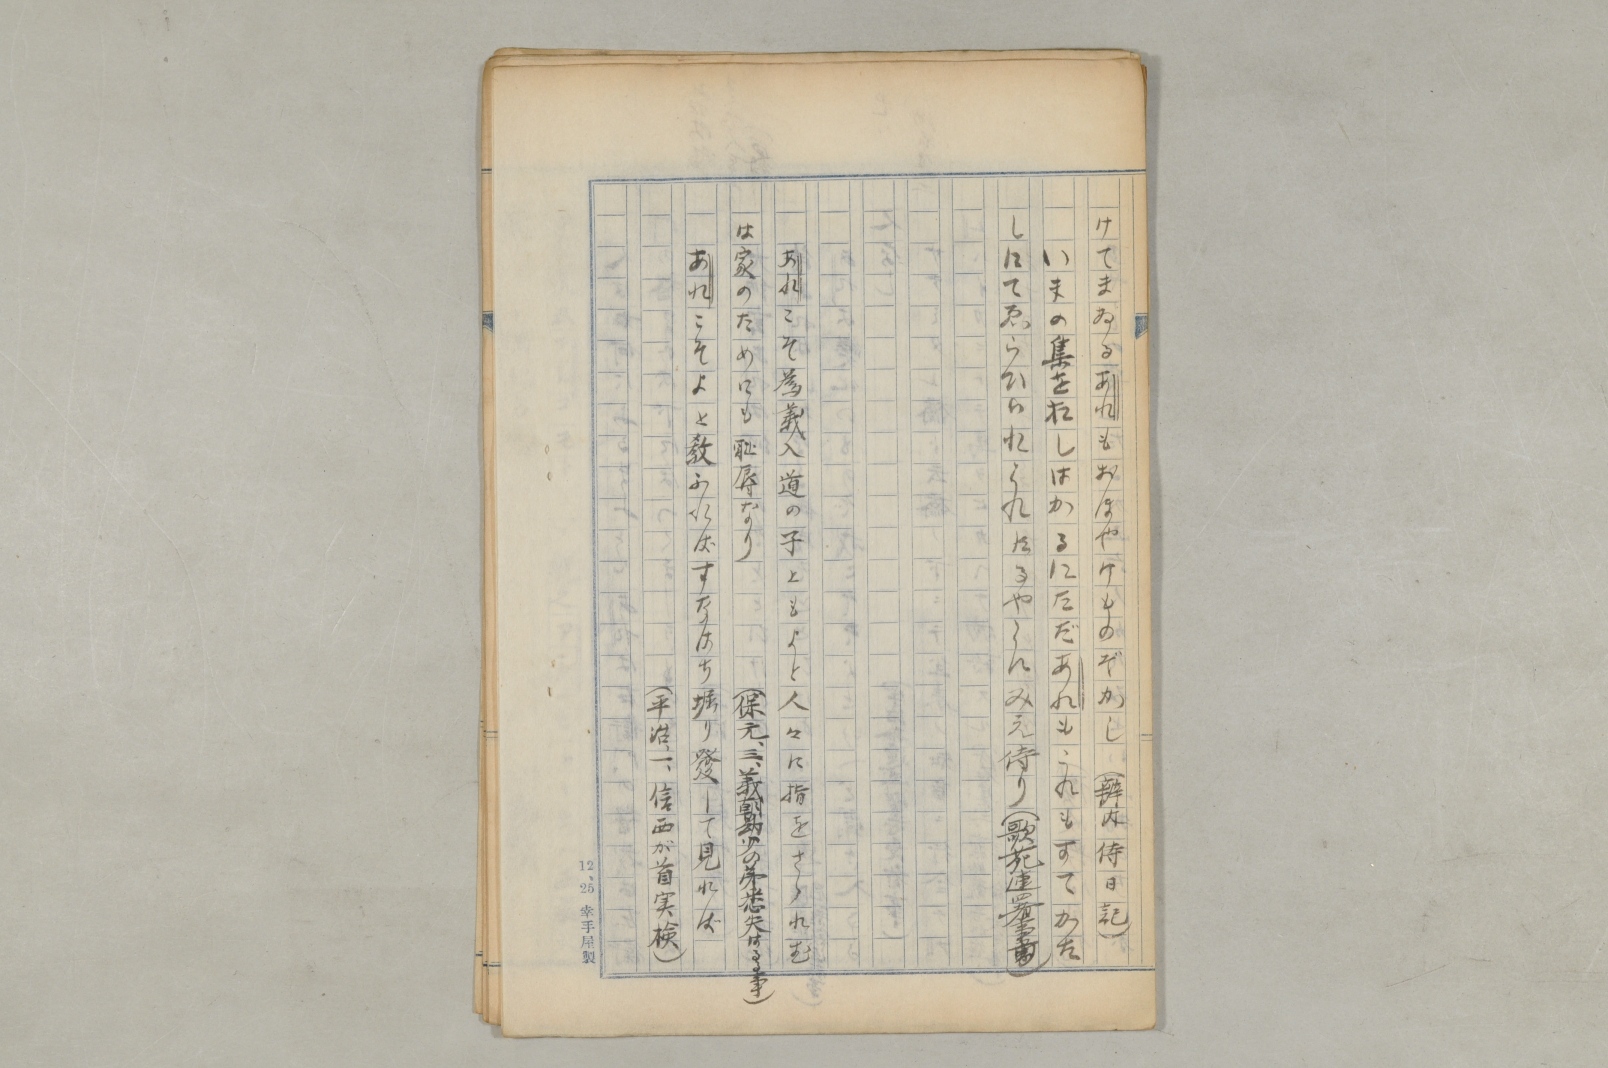 けてまゐるあれもおほやけものぞかし（辨内侍日記）
いまの集をおしはかるにただあれもうれもすてかた
しにてゑらひられうれたるやうにみえ侍り（歌苑連署事書）
あれこそ為義入道の子ともよと人々に指をさゝれむ
は家のためにも恥辱なり（保元、三、義朝幼少の弟悉失はるる事）
あれこそよと教ふればすなはち堀り發して見れば
（平治一、信西が首実検）
12、25 幸手屋製